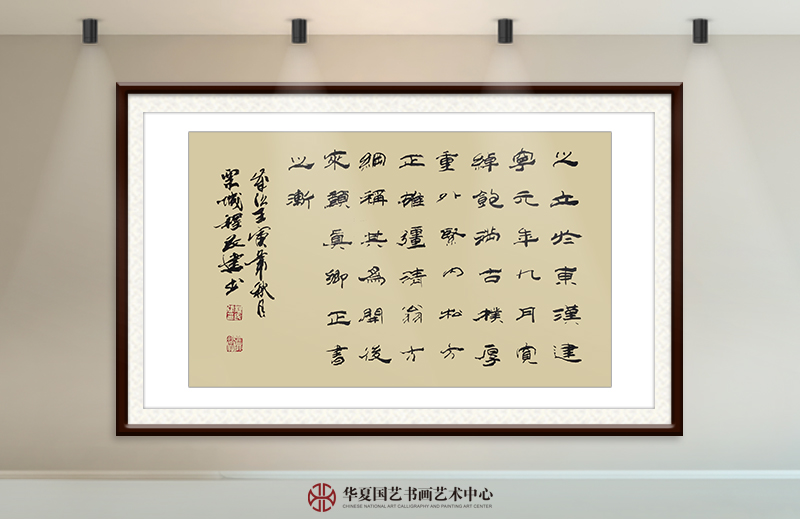 之立於東漢建
寧元年九月寬
綽飽滿古樸厚
重外緊內松方
正雄彊清翁方
綱稱其為開後
來顏真卿正書
之漸
歲次壬寅年秋月
欒城程
书
华夏国艺书画艺术中心
CHINESE NATIONAL ART CALLIGRAPHY AND PAINTING ART CENTER